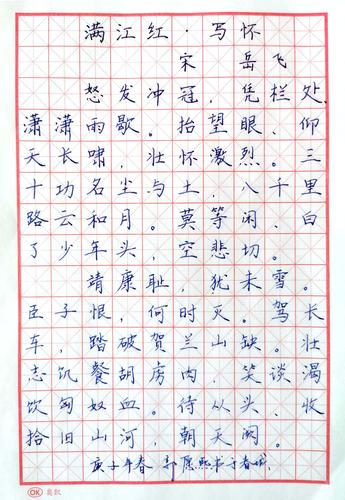 满江红·写怀
宋 岳飞
怒发冲冠，凭栏处、
潇潇雨歇。抬望眼、仰
天长啸，壮怀激烈。三
十功名尘与土，八千里
路云和月。莫等闲、白
了少年头，空悲切。
靖康耻，犹未雪。
臣子恨，何时灭。驾长
车，踏破贺兰山缺。壮
志饥餐胡虏肉，笑谈渴
饮匈奴血。待从头、收
拾旧山河，朝天阙。
庚子年春 郭愿熙书于春城
OK 奥凯